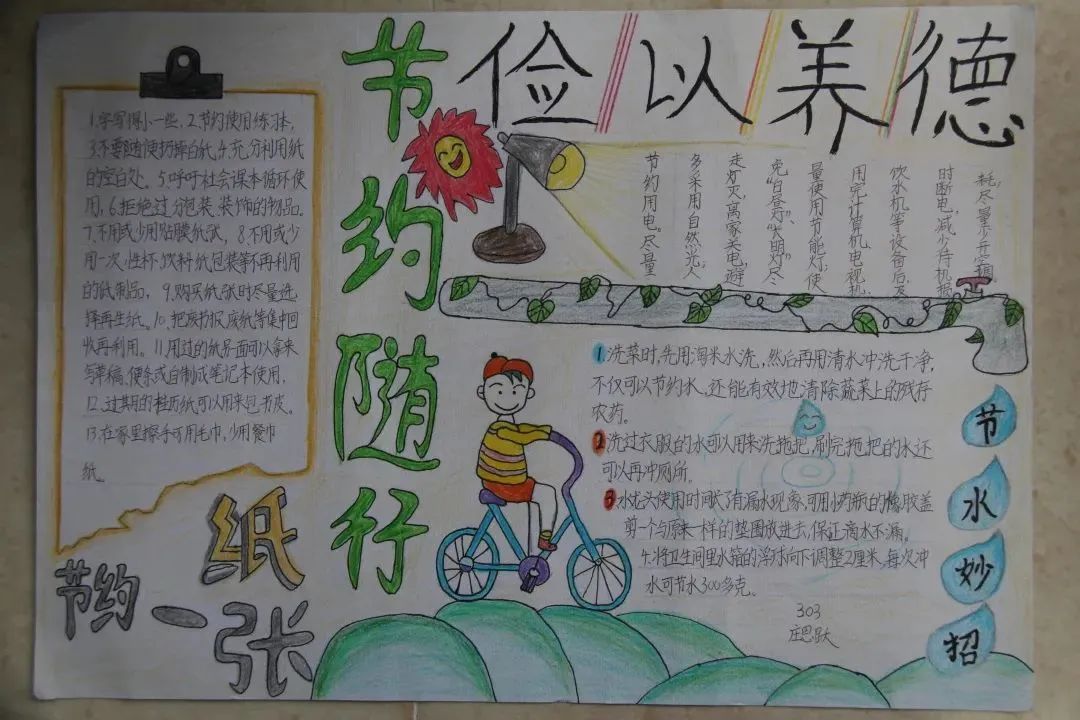 俭以养德
节约随行
1.字写得小一些,2.节约使用练习本,
3.不要随便扔掉白纸,4.充分利用纸
的空白处。5.呼吁社会课本循环使
用,6.拒绝过分包装、装饰的物品。
7.不用或少用贴膜纸张,8.不用或少
用一次性杯、饮料纸包装等不再利用
的纸制品,9.购买纸张时尽量选
择再生纸。10.把废报、废纸等集中回
收再利用。11.用过的纸界面可以拿来
写草稿、便条或自制成笔记本使用,
12.过期的挂历纸可以用来包书皮。
13.在家里擦手可用毛巾,少用餐巾
纸。
节约一张纸
节约用电。尽量
多采用自然光,人
走灯灭,离家关电,避
免“白昼灯”、“大明灯”尽
量使用节能灯;使
用完计算机、电视机、
饮水机等设备后及
时断电,减少待机损
耗;尽量少开空调。
1.洗菜时,先用淘米水洗,然后再用清水冲洗干净,
不仅可以节约水,还能有效地清除蔬菜上的残存
农药。
2.洗过衣服的水可以用来洗拖把,刷完拖把的水还
可以再冲厕所。
3.水龙头使用时间长了有漏水现象,可用小药瓶的橡胶盖
剪一个与原来一样的垫圈放进去,保证滴水不漏。
4.将卫生间里水箱的浮球向下调整2厘米,每次冲
水可节水300多克。
节水妙招
303
庄思跃